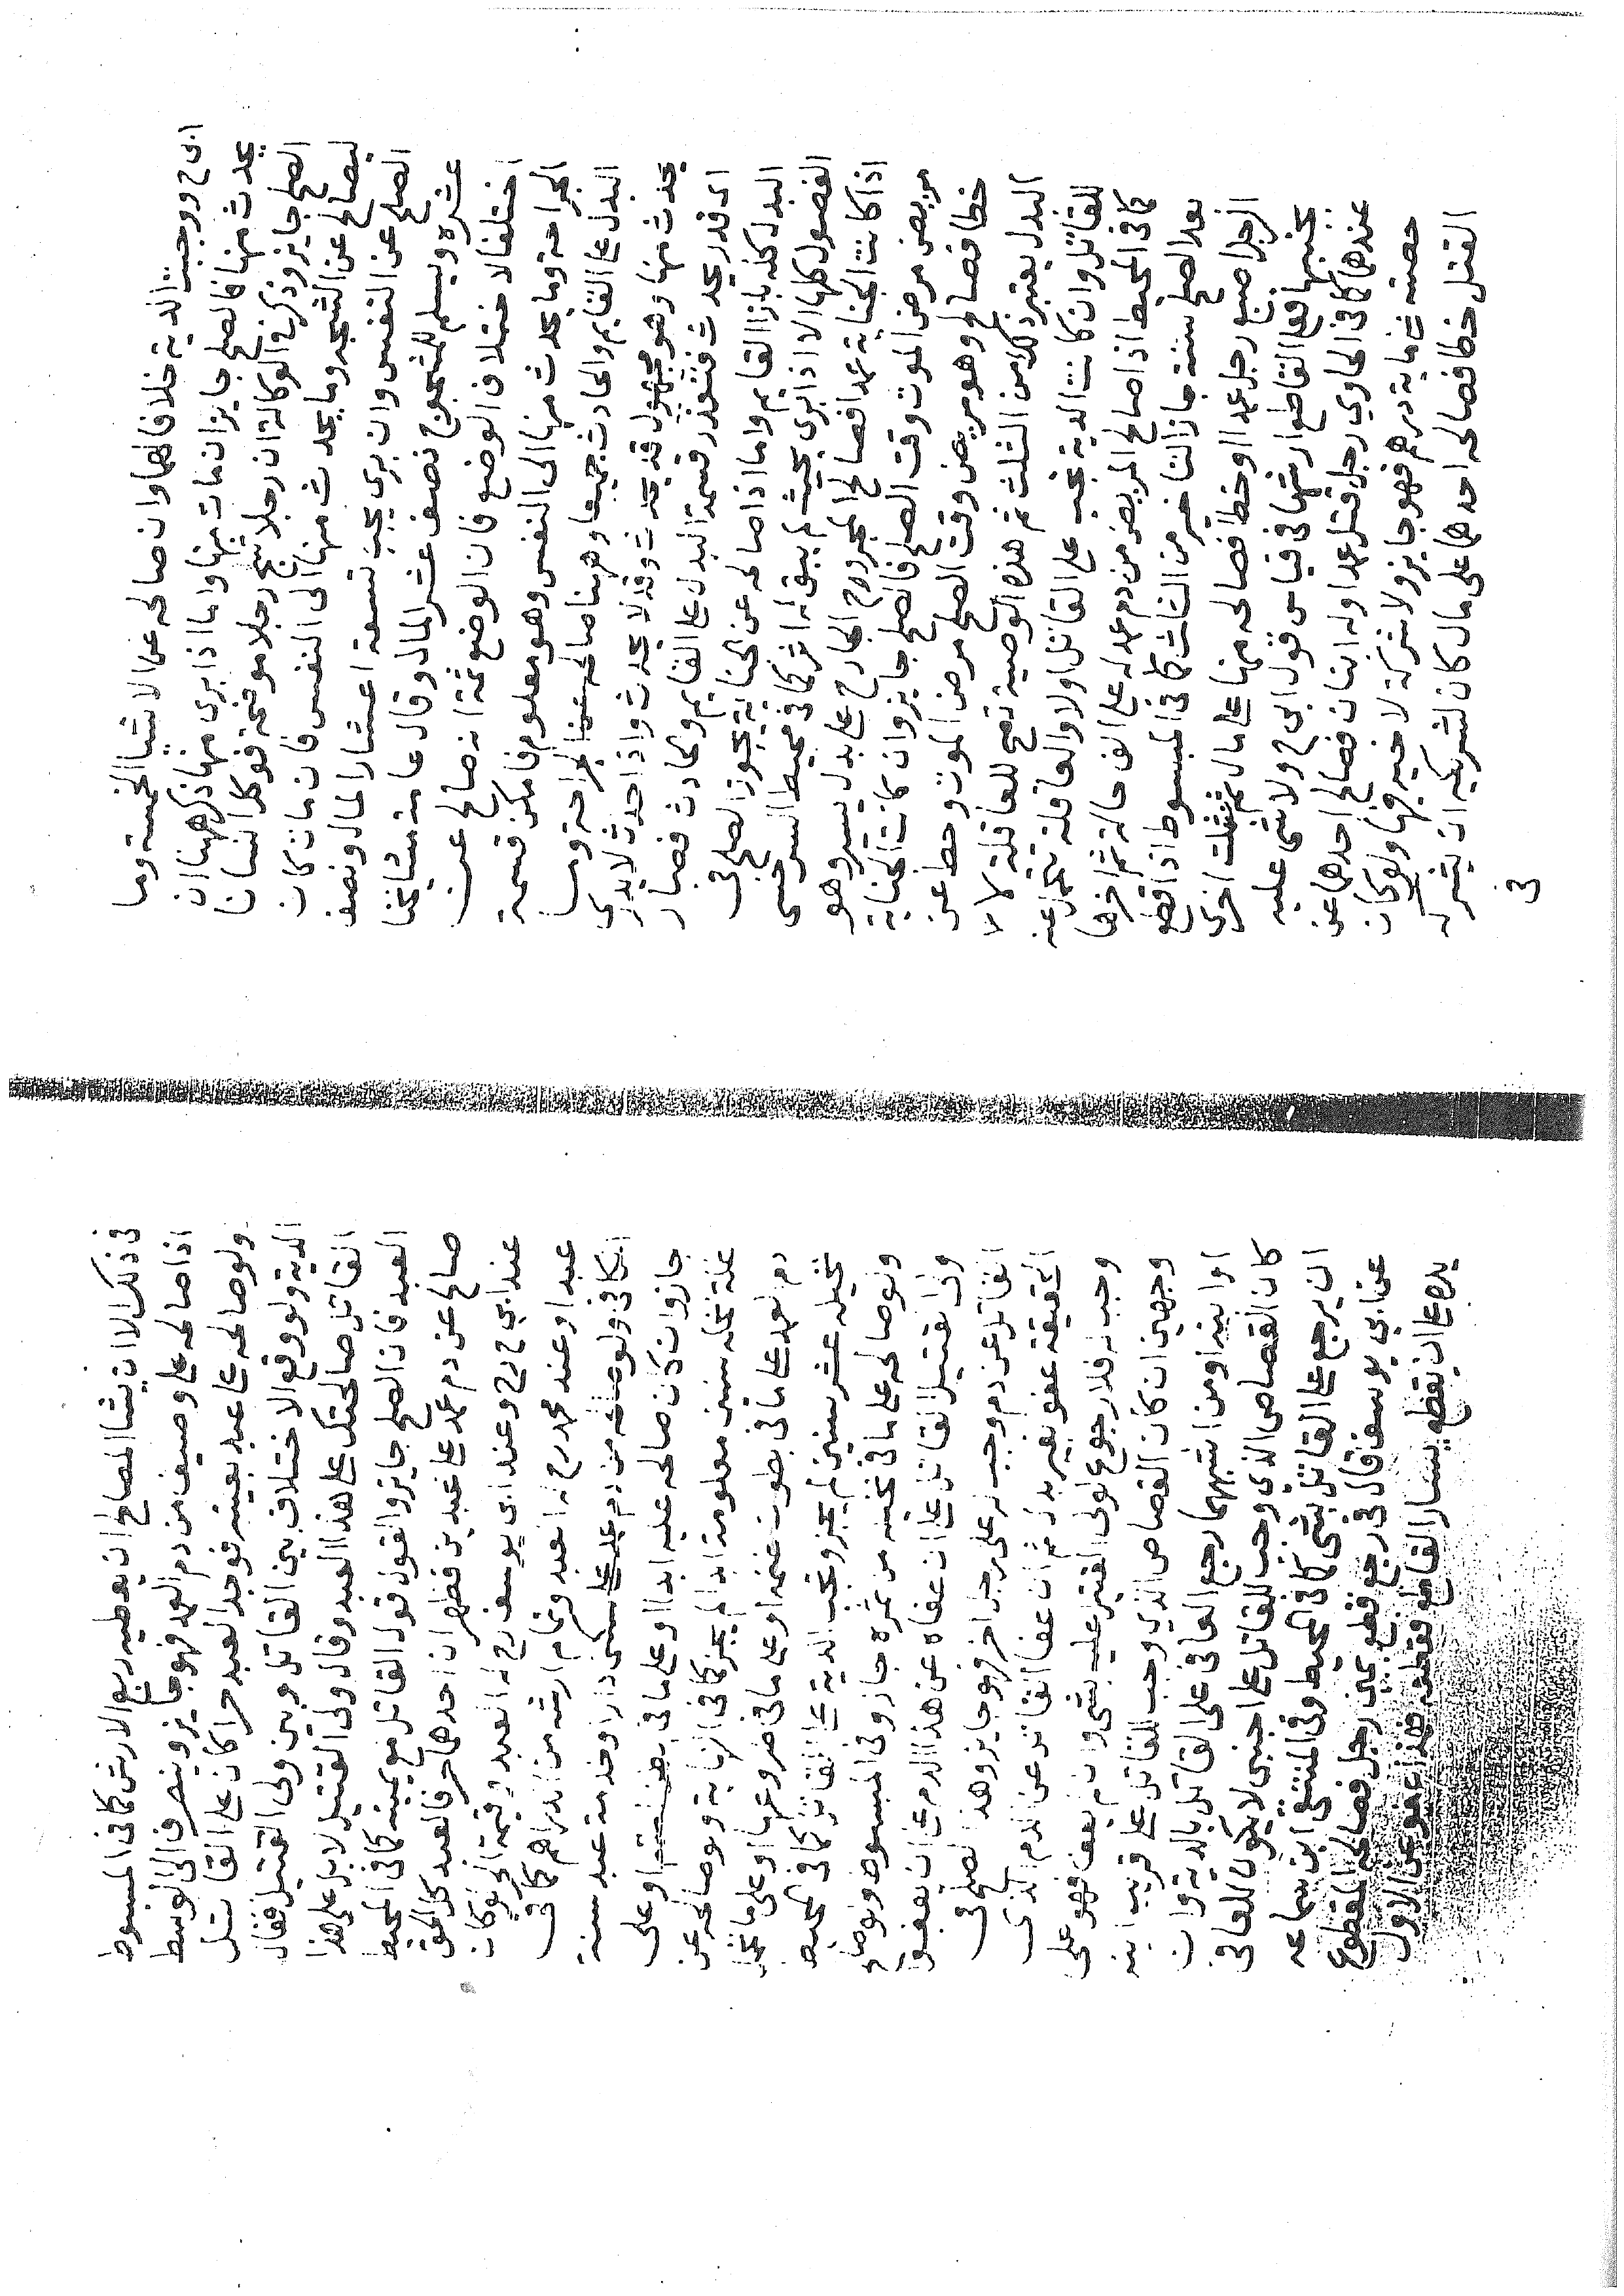 ابى ح ووجبت الدية خلافا لهما وان صالحه عن الاشيا الخمسة وما
يحدث منها فالصلح جايز ان مات منها واما اذا برى منها ذكر ههنا ان
الصلح جايز وذكر فى الوكالة ان رجلا شج رجلا موضحة فوكل انسانا
ليصالح عن الشجه وما يحدث منها الى النفس فان مات كان
الصلح عن النفس وان برى يجب تسعة اعشار المال ونصف
عشره ويسلم للمشجوج نصف عشر المال وقال عامة مشايخنا
اختلفا لاختلاف الوضع فان الوضع ثمة انه صالح عن
الجراحة وما يحدث منها الى النفس وهو معلوم فامكن قسمة
البدل على القايم والحادث جميعا وههنا صالحه عن الجراحة وما
يحدث منها وهو مجهول قد يحدث وقد لا يحدث واذا حدث لا يدرى
اى قدر يحدث فتعذر قسمة البدل على القايم والحادث فصار
البدل كله بازا القايم واما اذا صالحه عن الجناية يجوز الصلح فى
الفصول كلها الا اذا برى بحيث لم يبق له اثر كما فى محيط السرخسى
اذا كانت الجناية عمدا فصالح المجروح الجارح على بدل يسير وهو
مريض مرض الموت وقت الصلح فالصلح جايز وان كانت الجناية
خطا فصالح وهو مريض وقت الصلح مرض الموت وحط عن
البدل يعتبر ذلك من الثلث ثم هذه الوصية تصح للعاقلة لا لا
للقاتل وان كانت الدية تجب على القاتل اولا والعاقلة تتحمل عنه
كما فى المحيط اذا صالح المريض من دم عمد له على الف حالة ثم اخرها
بعد الصلح سنة جاز التاخير من الثلث كما فى المبسوط اذا قطع
الرجل اصبع رجل عمدا او خطأ فصالحه منها على مال ثم شلت اخرى
بجنبها فعلى القاطع ارشها فى قياس قول ابى ح ولا شى عليه
عندهما كما فى الحاوي رجل قتل عمدا وله ابنان فصالح احدهما عن
حصته على ماية درهم فهو جايز ولا شركة لاخيه فيها ولو كان
القتل خطا فصالحه احدهما على مال كان لشريكه ان يشركه
فى
فى ذلك الا ان يشا المصالح ان يعطيه ربع الارش كما فى المبسوط
اذا صالحه على وصيف من دم العمد فهو جايز وينصرف الى الوسط
ولو صالحه على عبد بعينه فوجد العبد حرا كان على القاتل
الدية ولو وقع الاختلاف بين القاتل وبين ولى القتيل فقال
القاتل صالحتك على هذا العبد وقال ولى القتيل لا بل على هذا
العبد فان الصلح جايز والقول قول القاتل مع يمينه كما فى المحيط
صالح عن دم عمد على عبدين فظهر ان احدهما حر فالعبد كل الحق
عند ابي ح رح وعند ابى يوسف رح له العبد وقيمة الحر لو كان
عبدا وعند محمد رح له العبد وتمام ارشه من الدراهم كما فى
الكافى ولو صالحه من دم عمد على سكنى دار او خدمة عبد سنة
جاز وان كان صالحه عليه ابدا او على ما فى بطن امته او على
غلة نخله سنين معلومة ابدا لم يجز كما فى النهاية ولو صالحه عن
دم العمد على ما فى بطون غنمه او على ما فى ضروعها او على ما تحمل
نخيله عشر سنين لم يجز وتجب الدية على القاتل كما فى المحيط
ولو صالحه على ما فى نخله من ثمره جاز وفى المبسوط ولو صالح
ولى القتيل القاتل على ان عفاه عن هذا الدم على ان يعفو
القاتل عن دم وجب له على رجل اخر فهو جايز وهذا الصلح فى
الحقيقة عفو بغير بدل ثم ان عفا القاتل عن الدم الذى
وجب له فلا رجوع لولى القتيل عليه بشى وان لم يعف فهو على
وجهين ان كان القصاص الذي وجب للقاتل على قريب ابنه
او ابيه او من اشبههما رجع العافى على القاتل بالدية وان
كان القصاص الذي وجب للقاتل على اجنبى لا يكون للعافى
ان يرجع على القاتل بشى كما فى المحيط وفى المنتقى ابن سماعه
عن ابي يوسف قال فى رجل قطع يمين رجل فصالحه المقطوع
يده على ان يقطع يسار القاطع فقطعه فهذا عفو عن الاول